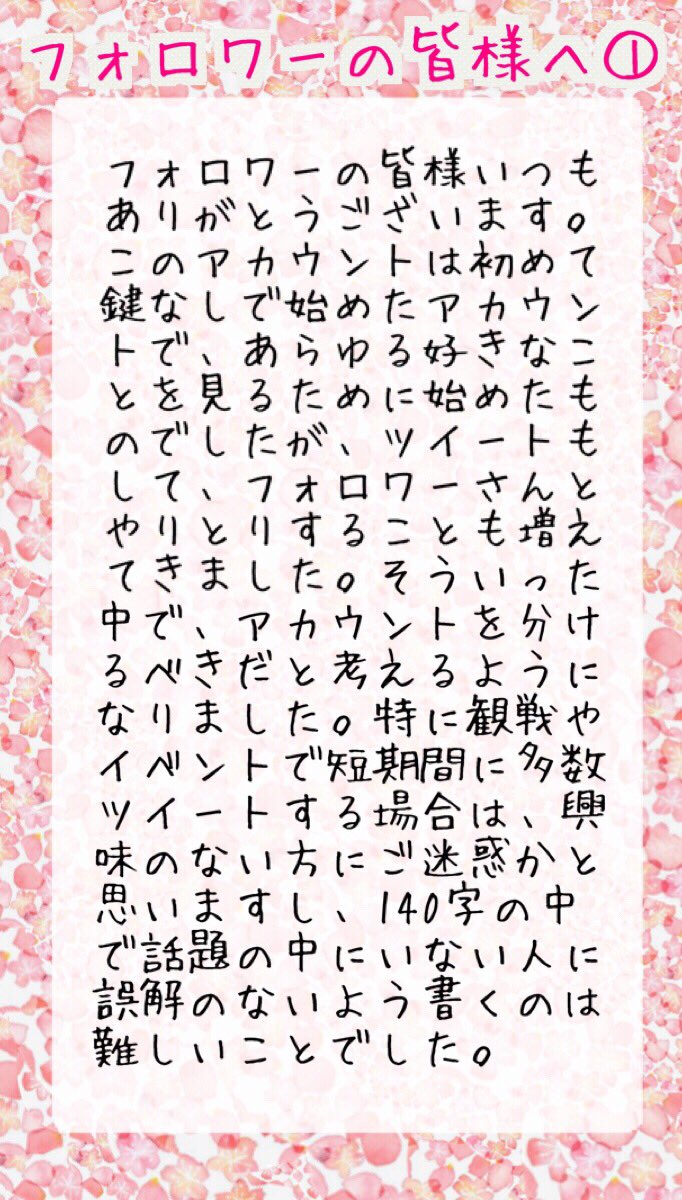 フォロワーの皆様へ①
フォロワーの皆様いつも
ありがとうございます。
このアカウントは初めて
鍵なしで始めたアカウン
トで、あらゆる好きなこ
とを見るために始めたも
のでしたが、ツイートも
して、フォロワーさんと
やりとりすることも増え
てきました。そういった
中で、アカウントを分け
るべきだと考えるように
なりました。特に観戦や
イベントで短期間に多数
ツイートする場合は、興
味のない方にご迷惑かと
思いますし、140字の中
で話題の中にいない人に
誤解のないよう書くのは
難しいことでした。